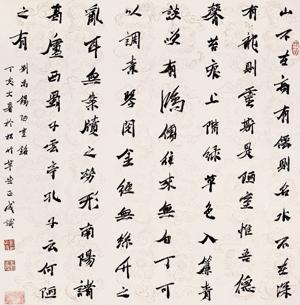 山不在高有仙則名水不在深
有龍則靈斯是陋室惟吾德
馨苔痕上階綠草色入簾青
談笑有鴻儒往來無白丁可
以調素琴閱金經無絲竹之
亂耳無案牘之勞形南陽諸
葛廬西蜀子雲亭孔子云何陋
之有
劉禹錫陋室銘
丁亥大暑於松竹草堂